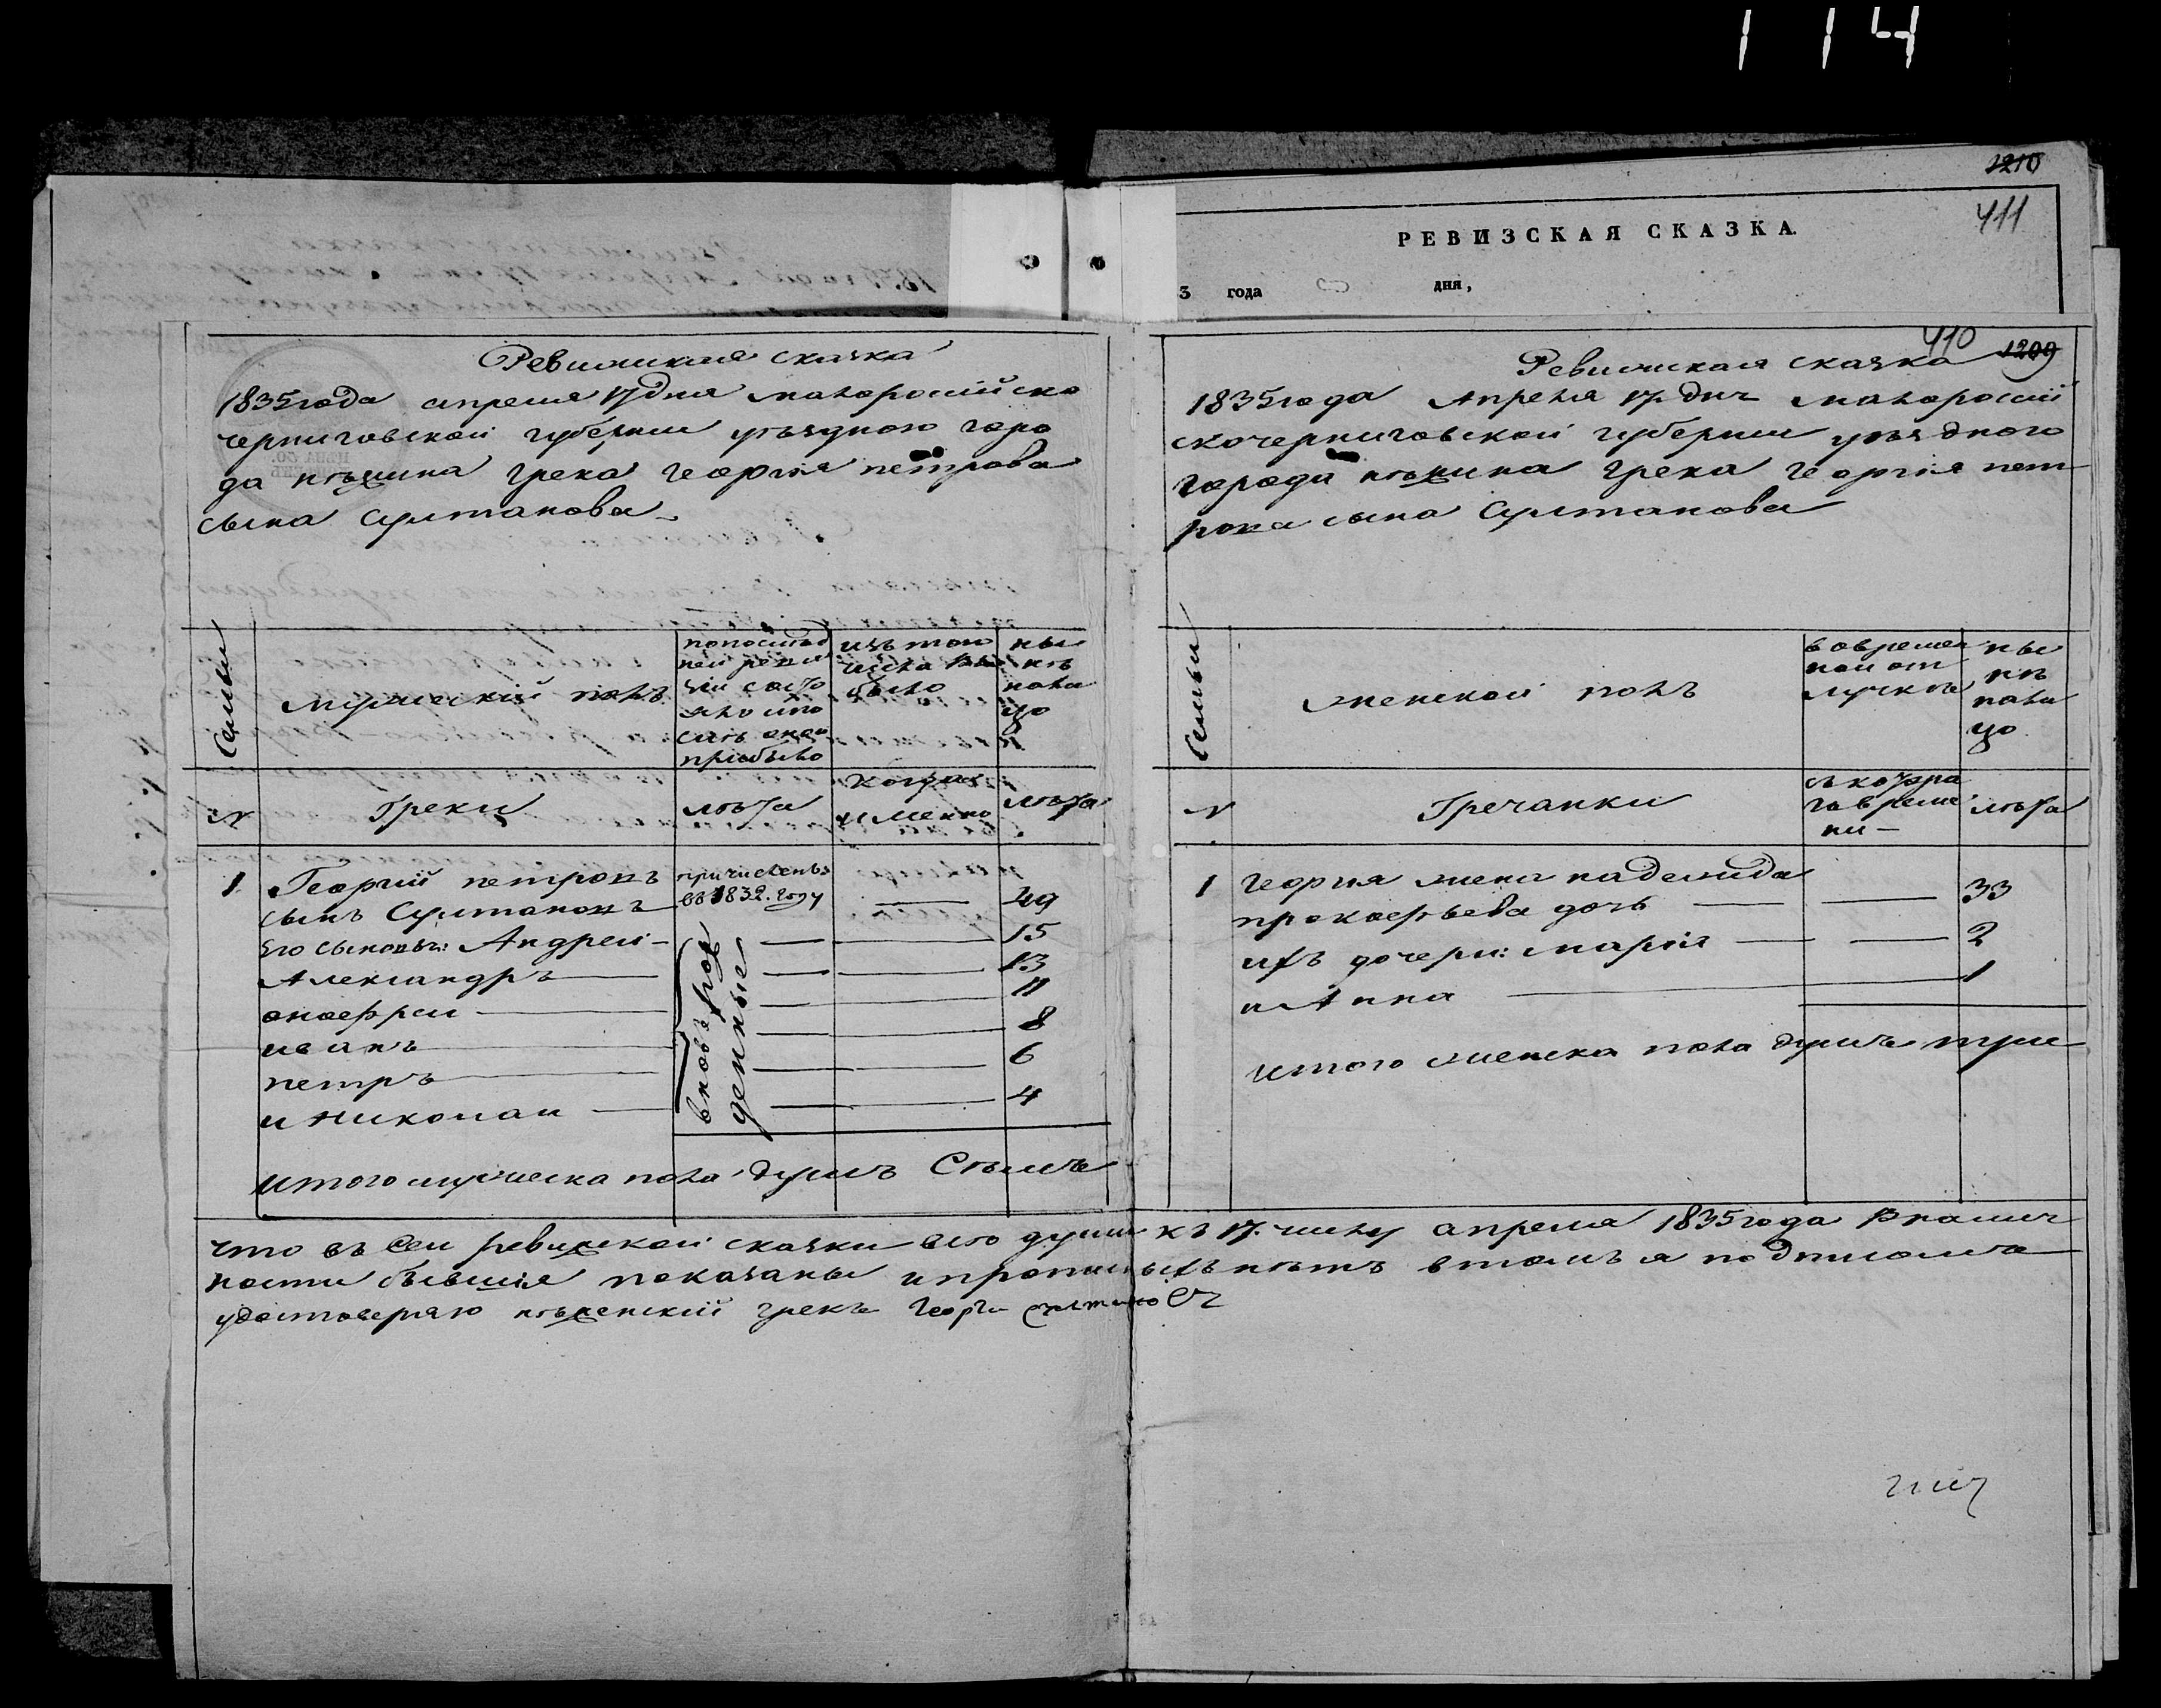 114
1210
411
РЕВИЗСКАЯ СКАЗКА.
3 года дня,
Ревижская сказка
1835 года апреля 17 дня малоросiйско
черниговской губернии уъзднаго горо
да нъжина грека георгiя петрова
сына Султанова
Семьи
мужеский полъ
по послед
ней реви
зiи состо
яло и по
слъ оной
прибыло
изъ того
числа вы
было
ны
нъ
нали
цо
№
Греки
лъта
когда
имянно
лъта
1 Георгий петровъ
сынъ Султановъ
причисленъ
въ 1832. году
49
Его сыновья: Андрей 15
Александръ 13
онофрей 11
иванъ 8
петръ 6
и николай 4
вновь рож
денные
итого мужеска пола душъ Съмъ
410 1209
Ревижская сказка
1835 года Апреля 17 дня малоросiй
скочерниговской губернии уъзднаго
города нъжина грека георгiя пет
рова сына Султанова
Семьи
женской полъ
во времен
ной от
лучкъ
ны
нъ
нали
цо
№
Гречанки
съ котора
го време
ни
лъта
1 георгiя жена надежида
прокофьева дочь 33
ихъ дочери: марiя 2
и Анна 1
итого женска пола душъ три
что въ сей ревижской сказки всъ души къ 17. числу апреля 1835 года в налич
ности бывшiя показаны и прописныхъ нътъ в томъ я подписомъ
удостоверяю нъженскiй грекъ Георги султановъ